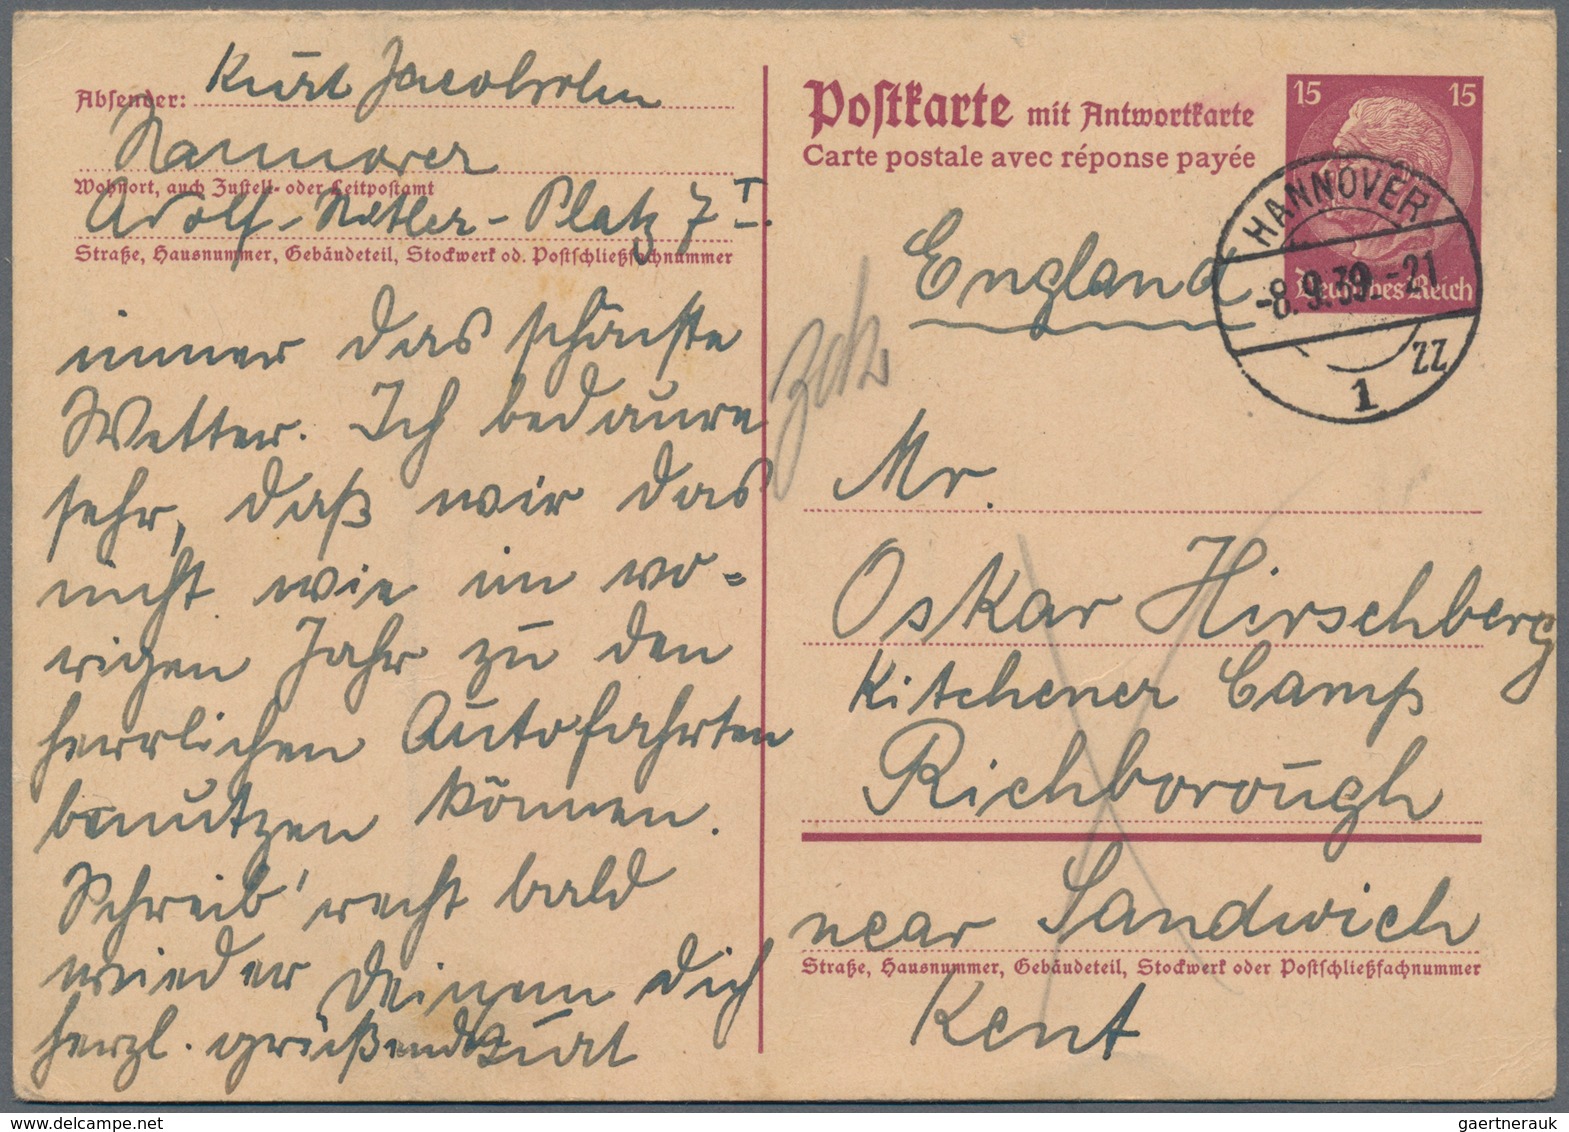 Absender: Kurt Jacobsohn
Hannover
Wohnort, auch Zustell- oder Leitpostamt
Adolf-Hitler-Platz 7 I.
Straße, Hausnummer, Gebäudeteil, Stockwerk od. Postschließfachnummer
immer das schönste
Wetter. Ich bedaure
sehr, daß wir das
nicht wie im vo-
rigen Jahr zu den
herrlichen Autofahrten
benutzen können.
Schreib' recht bald
wieder Deinem Dich
herzl. grüßenden Kurt
Postkarte mit Antwortkarte
Carte postale avec réponse payée
15 15
Deutsches Reich
HANNOVER
-8.9.39.-21
1 zz
England
Mr.
Oskar Hirschberg
Kitchener Camp
Richborough
near Sandwich
Straße, Hausnummer, Gebäudeteil, Stockwerk oder Postschließfachnummer
Kent
gaertnerauk